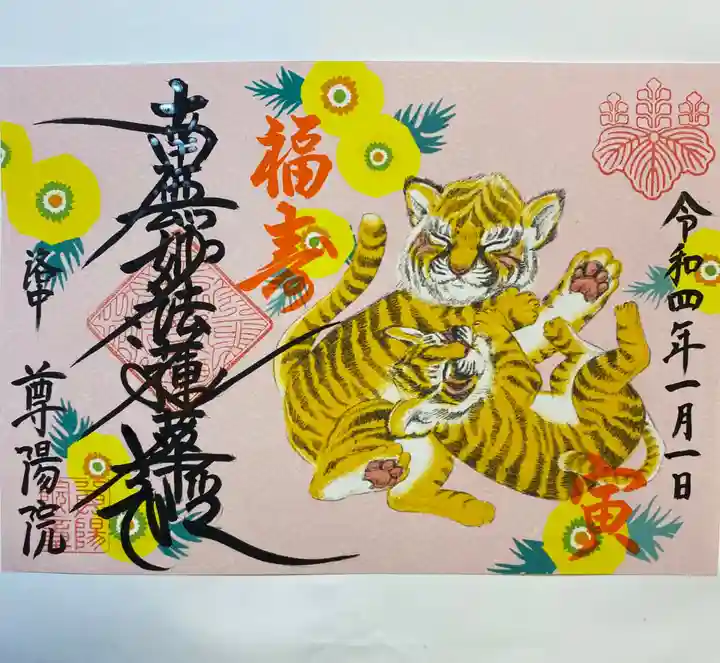 令和四年一月一日
寅
福寿
南無妙法蓮華経
洛中 尊陽院